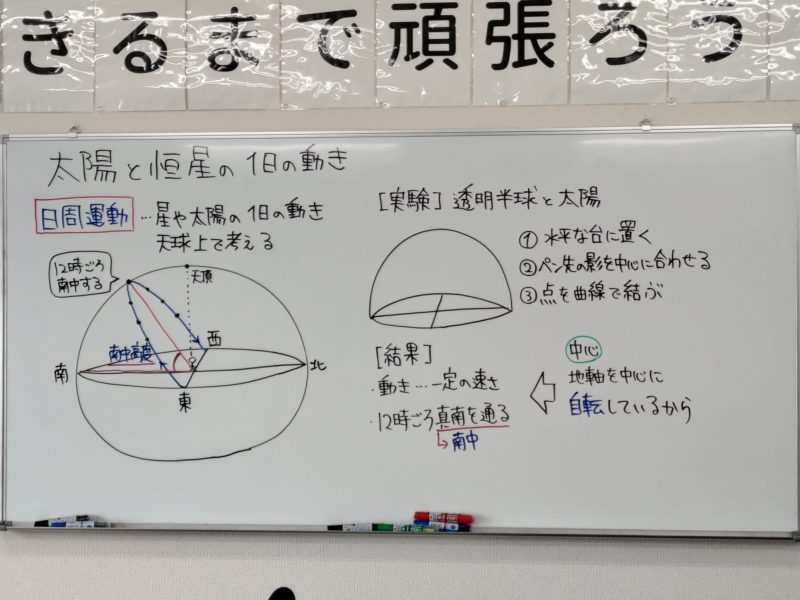 きるまで頑張ろう
太陽と恒星の1日の動き
日周運動…星や太陽の1日の動き
天球上で考える
12時ごろ
南中する
天頂
南中高度
西
南
北
東
[実験] 透明半球と太陽
① 水平な台に置く
② ペン先の影を中心に合わせる
③ 点を曲線で結ぶ
[結果]
・動き…一定の速さ
・12時ごろ真南を通る
↳南中
中心
地軸を中心に
自転しているから